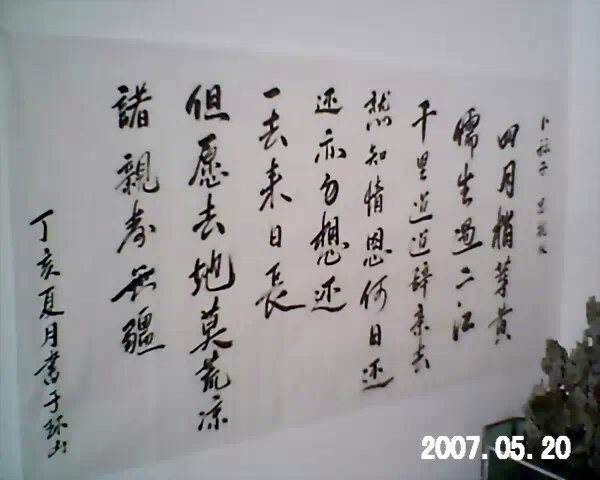 卜祘子 思親
四月稍芽黄
儒生過二江
千里迢迢辞亲去
知情恩何日还
还亦勿想还
一去来日長
但愿去地莫荒凉
諸親寿無疆
丁亥夏月書于环山
2007.05.20